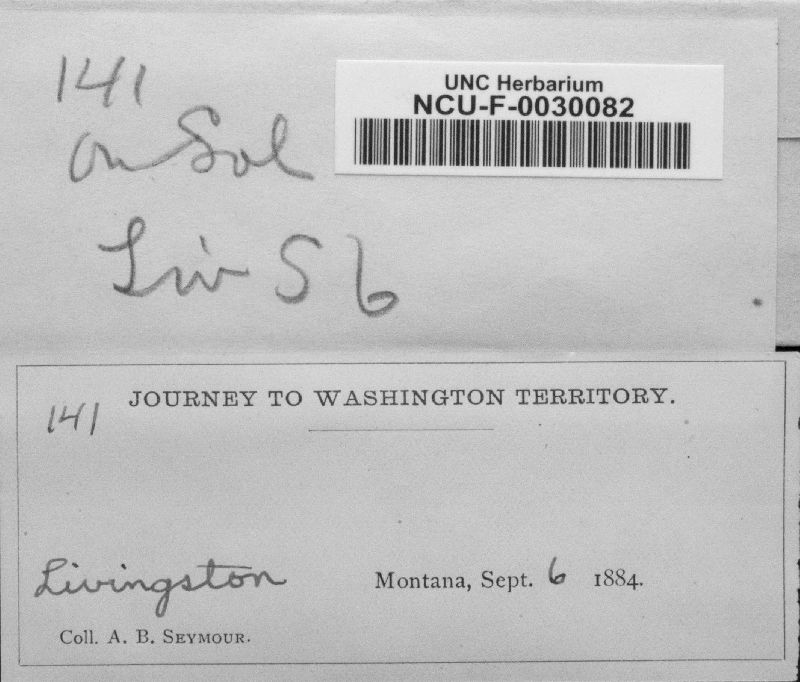 141
UNC Herbarium
NCU-F-0030082
on Sol
Liv S 6
JOURNEY TO WASHINGTON TERRITORY.
141
Livingston Montana, Sept. 6 1884.
Coll. A. B. SEYMOUR.